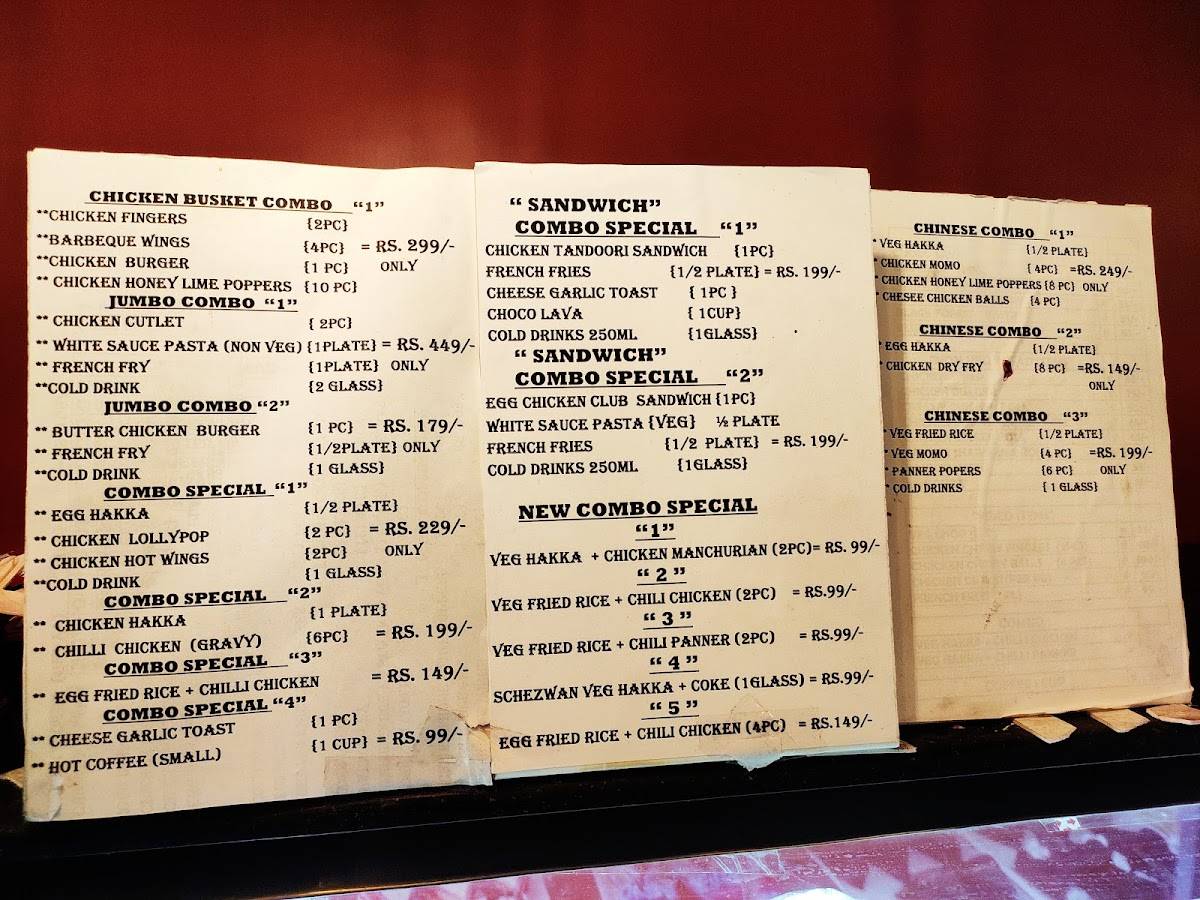 CHICKEN BUSKET COMBO "1"
**CHICKEN FINGERS {2PC}
**BARBEQUE WINGS {4PC} = RS. 299/-
**CHICKEN BURGER {1 PC} ONLY
** CHICKEN HONEY LIME POPPERS {10 PC}
JUMBO COMBO "1"
** CHICKEN CUTLET { 2PC}
** WHITE SAUCE PASTA (NON VEG) {1PLATE} = RS. 449/-
** FRENCH FRY {1PLATE} ONLY
**COLD DRINK {2 GLASS}
JUMBO COMBO "2"
** BUTTER CHICKEN BURGER {1 PC} = RS. 179/-
** FRENCH FRY {1/2PLATE} ONLY
**COLD DRINK {1 GLASS}
COMBO SPECIAL "1"
** EGG HAKKA {1/2 PLATE}
** CHICKEN LOLLYPOP {2 PC} = RS. 229/-
** CHICKEN HOT WINGS {2PC} ONLY
**COLD DRINK {1 GLASS}
COMBO SPECIAL "2"
** CHICKEN HAKKA {1 PLATE}
** CHILLI CHICKEN (GRAVY) {6PC} = RS. 199/-
COMBO SPECIAL "3"
** EGG FRIED RICE + CHILLI CHICKEN = RS. 149/-
COMBO SPECIAL "4"
** CHEESE GARLIC TOAST {1 PC}
** HOT COFFEE (SMALL) {1 CUP} = RS. 99/-
" SANDWICH"
COMBO SPECIAL "1"
CHICKEN TANDOORI SANDWICH {1PC}
FRENCH FRIES {1/2 PLATE} = RS. 199/-
CHEESE GARLIC TOAST { 1PC }
CHOCO LAVA { 1CUP}
COLD DRINKS 250ML {1GLASS}
" SANDWICH"
COMBO SPECIAL "2"
EGG CHICKEN CLUB SANDWICH {1PC}
WHITE SAUCE PASTA {VEG} ½ PLATE
FRENCH FRIES {1/2 PLATE} = RS. 199/-
COLD DRINKS 250ML {1GLASS}
NEW COMBO SPECIAL
"1"
VEG HAKKA + CHICKEN MANCHURIAN (2PC)= RS. 99/-
" 2 "
VEG FRIED RICE + CHILI CHICKEN (2PC) = RS.99/-
" 3 "
VEG FRIED RICE + CHILI PANNER (2PC) = RS.99/-
" 4 "
SCHEZWAN VEG HAKKA + COKE (1GLASS) = RS.99/-
" 5 "
EGG FRIED RICE + CHILI CHICKEN (4PC) = RS.149/-
CHINESE COMBO "1"
* VEG HAKKA {1/2 PLATE}
* CHICKEN MOMO { 4PC} =RS. 249/-
* CHICKEN HONEY LIME POPPERS {8 PC} ONLY
* CHESEE CHICKEN BALLS {4 PC}
CHINESE COMBO "2"
* EGG HAKKA {1/2 PLATE}
* CHICKEN DRY FRY {8 PC} =RS. 149/-
ONLY
CHINESE COMBO "3"
* VEG FRIED RICE {1/2 PLATE}
* VEG MOMO {4 PC} =RS. 199/-
* PANNER POPERS {6 PC} ONLY
* COLD DRINKS { 1 GLASS}